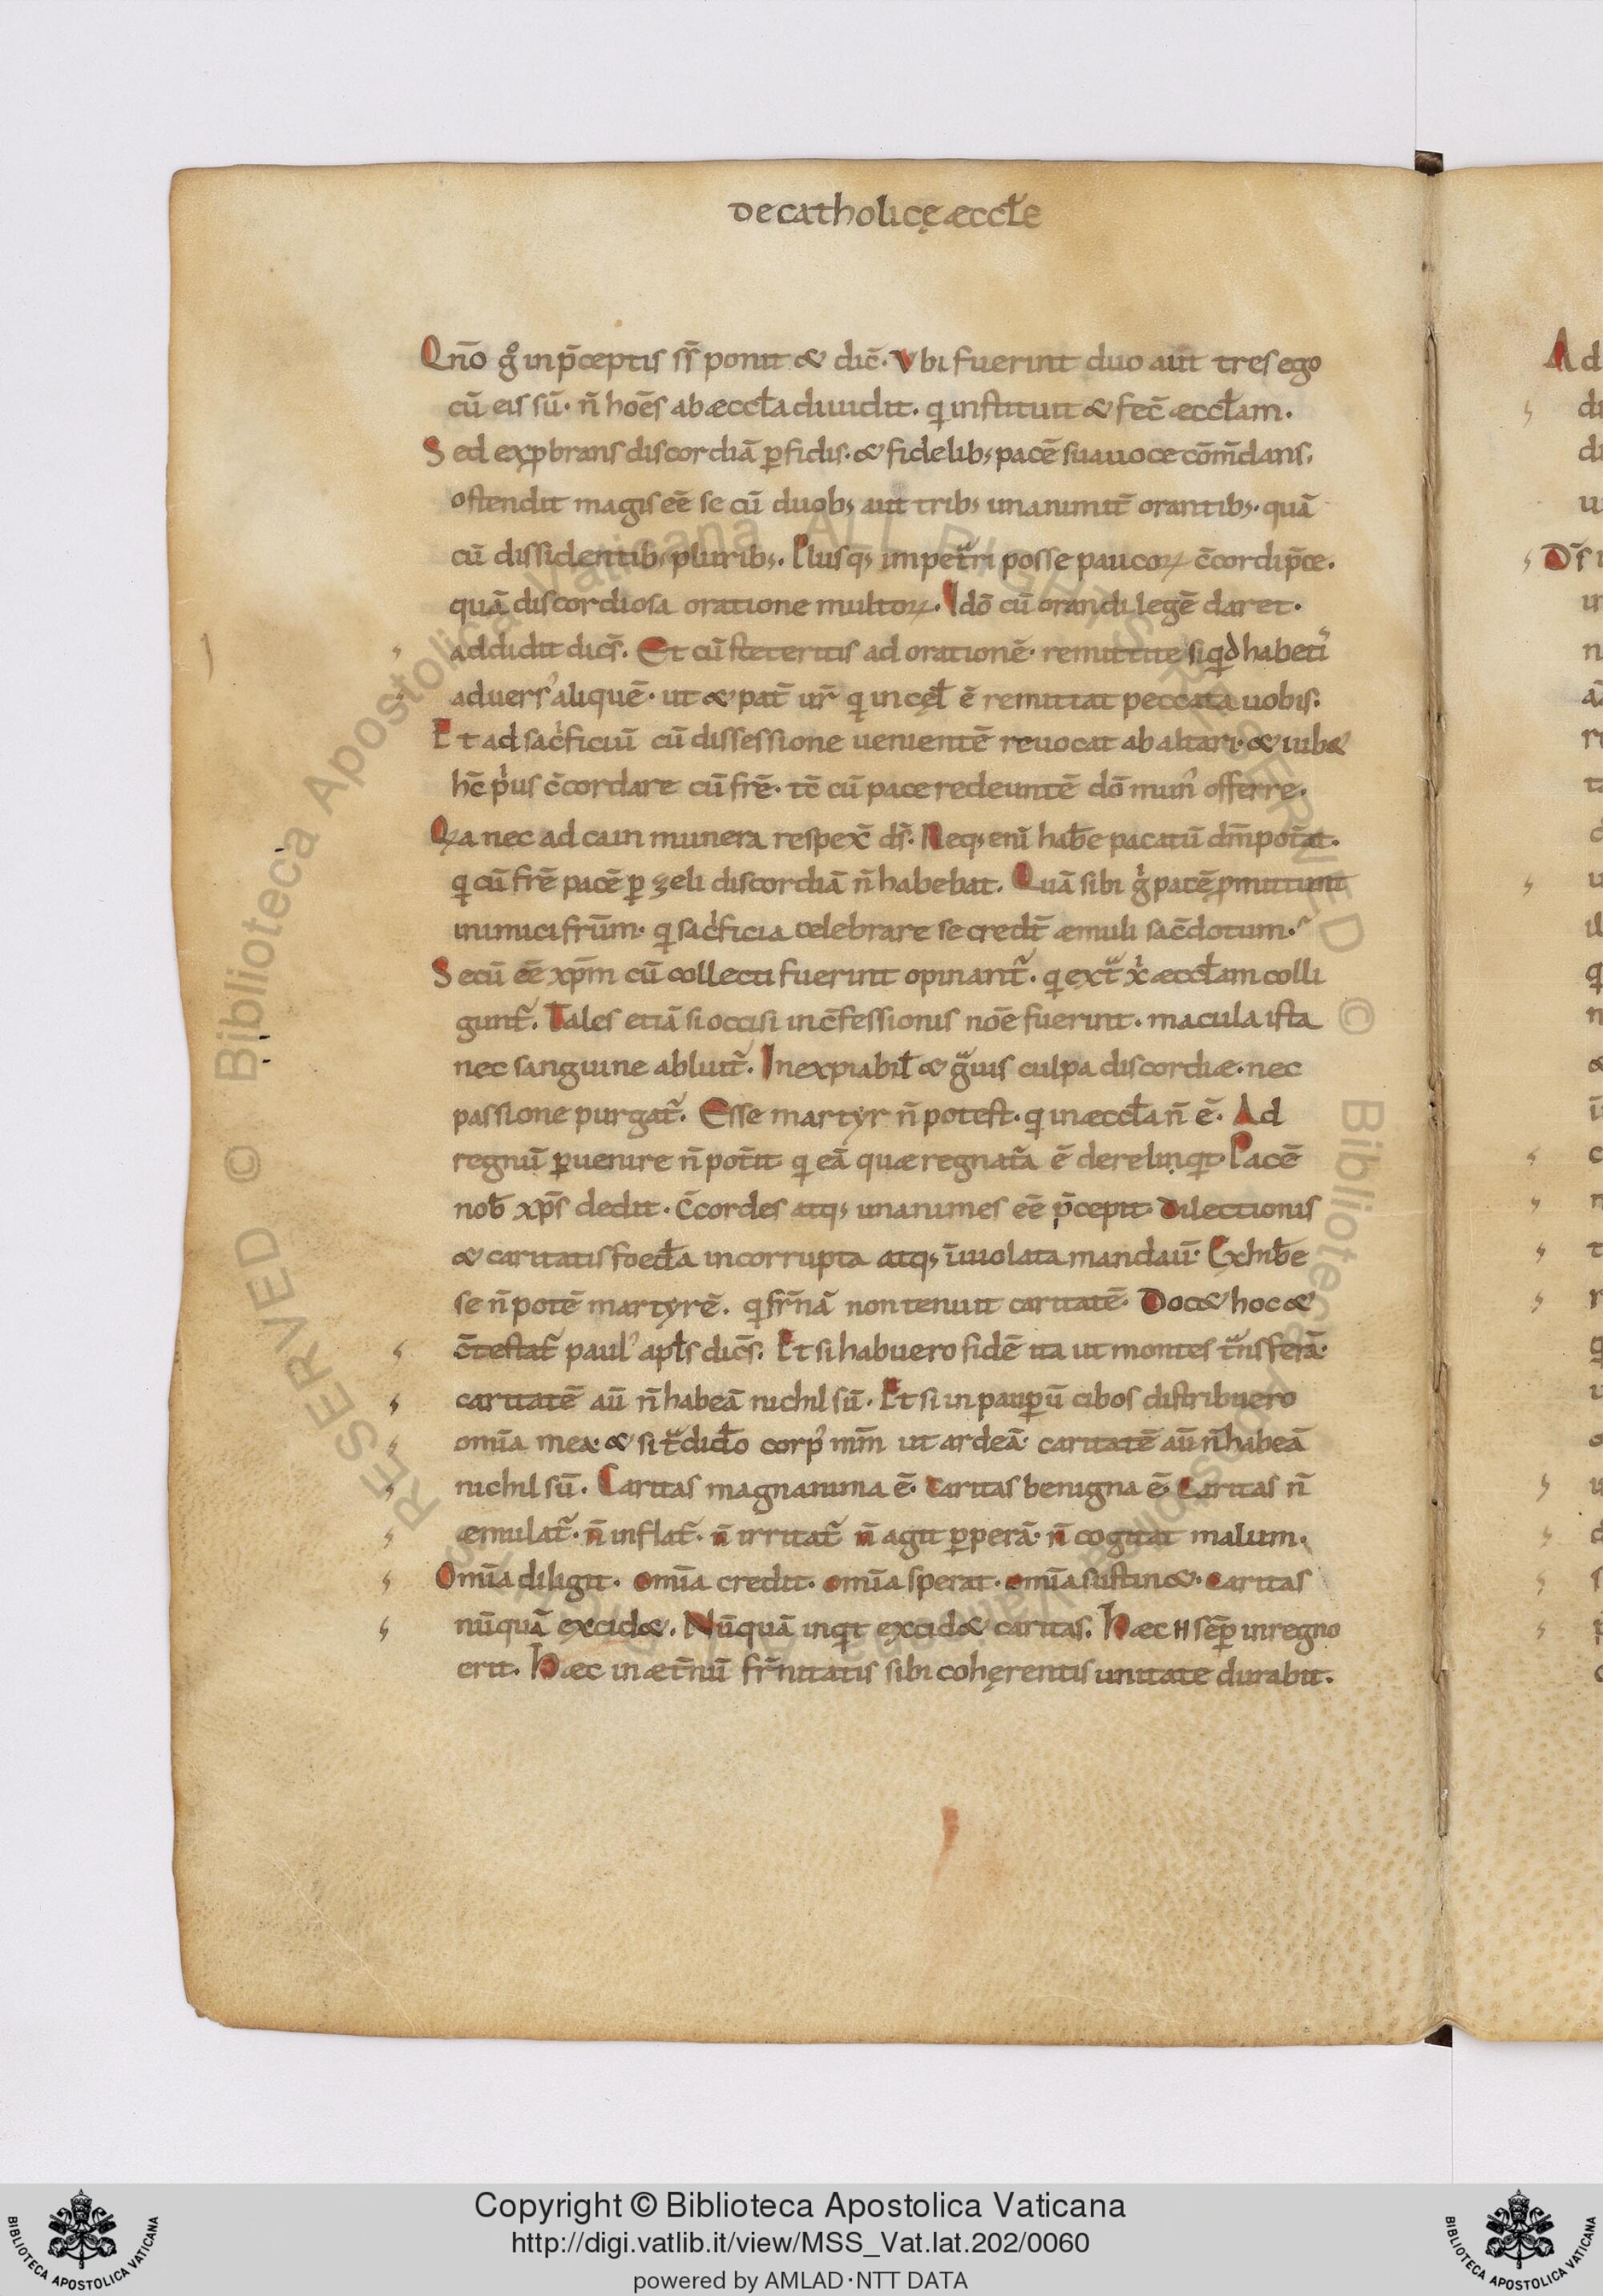 De catholicę æccłe
Qn̄o gͦ in p̄ceptis sı̄s ponit & dic̄. Ubi fuerint duo aut tres ego
cū eis sū. n̄ hoēs ab æccła diuidit. q instituit & fec̄ æccłam.
Sed exprobrans discordiā ꝑfidis. & fidelib; pacē sua uoce cōm̄dans.
ostendit magis eē se cū duob; aut trib; unanimit̄ orantib;. quā
cū dissidentib; plurib;. Plusq; impetri posse paucoꝝ c̄cordi p̄ce.
quā discordiosa oratione multoꝝ. Idō cū orandi legē daret.
addidit dics̄. Et cū steteritis ad orationē. remittite siqd habeti
aduers' aliquē. ut & pat̄ ur̄ q in cęł ē remittat peccata uobis.
Et ad sacficiū cū dissessione uenientē reuocat ab altari. & iub&
hc̄ pus c̄cordare cū frē. tc̄ cū pace redeuntē dō mun' offerre.
Qa nec ad cain munera respex̄ ds̄. Neq; enī hab̄e pacatū dm̄ pot̄at.
q cū frē pacē ꝑ zeli discordiā n̄ habebat. Quā sibi g pacē promittunt
inimici frūm. q sacficia celebrare se credt̄ æmuli sac̄dotum.
Secū eē xp̄m cū collecti fuerint opinant̄. q ext x æccłam colli
gunt̄. Tales etiā si occisi in c̄fessionis noē fuerint. macula ista
nec sanguine abluit̄. Inexpiabił & guis culpa discordiæ. nec
passione purgat̄. Esse martyr n̄ potest. q in æccła n̄ ē. Ad
regnū ꝑuenire n̄ pot̄it q eā quæ regnat̄a ē derelinqt. Pacē
nob̄ xp̄s dedit. c̄cordes atq; unanimes eē p̄cepit. Dilectionis
& caritatis foed̄a incorrupta atq; īuiolata mandau̅. Exhib̄e
se n̄ potē martyrē. q fr̄nā non tenuit caritatē. Doc& hoc &
c̄testat̄ paul' apłs dicc̄s. Et si habuero fidē ita ut montes tnsferā.
caritatē aū n̄ habeā nichil sū. Et si in pauꝑū cibos distribuero
omīa mea. & si tdid̄o corp' mm̄ ut ardeā. caritatē aū n̄ habeā
nichil sū. Caritas magnanima ē. caritas benigna ē. Caritas n̄
æmulat̄. n̄ inflat̄. n̄ irritat̄ n̄ agit ꝑperā. n̄ cogitat malum.
Omīa diligit. omīa credit. omīa sperat. omīa sustin&. caritas
nūquā excid&. Nūquā inqt excid& caritas. Hæc H sēꝑ in regno
erit. Hæc in æt̄nū fr̄nitatis sibi cohęrentis unitate durabit.
Copyright © Biblioteca Apostolica Vaticana
http://digi.vatlib.it/view/MSS_Vat.lat.202/0060
powered by AMLAD·NTT DATA